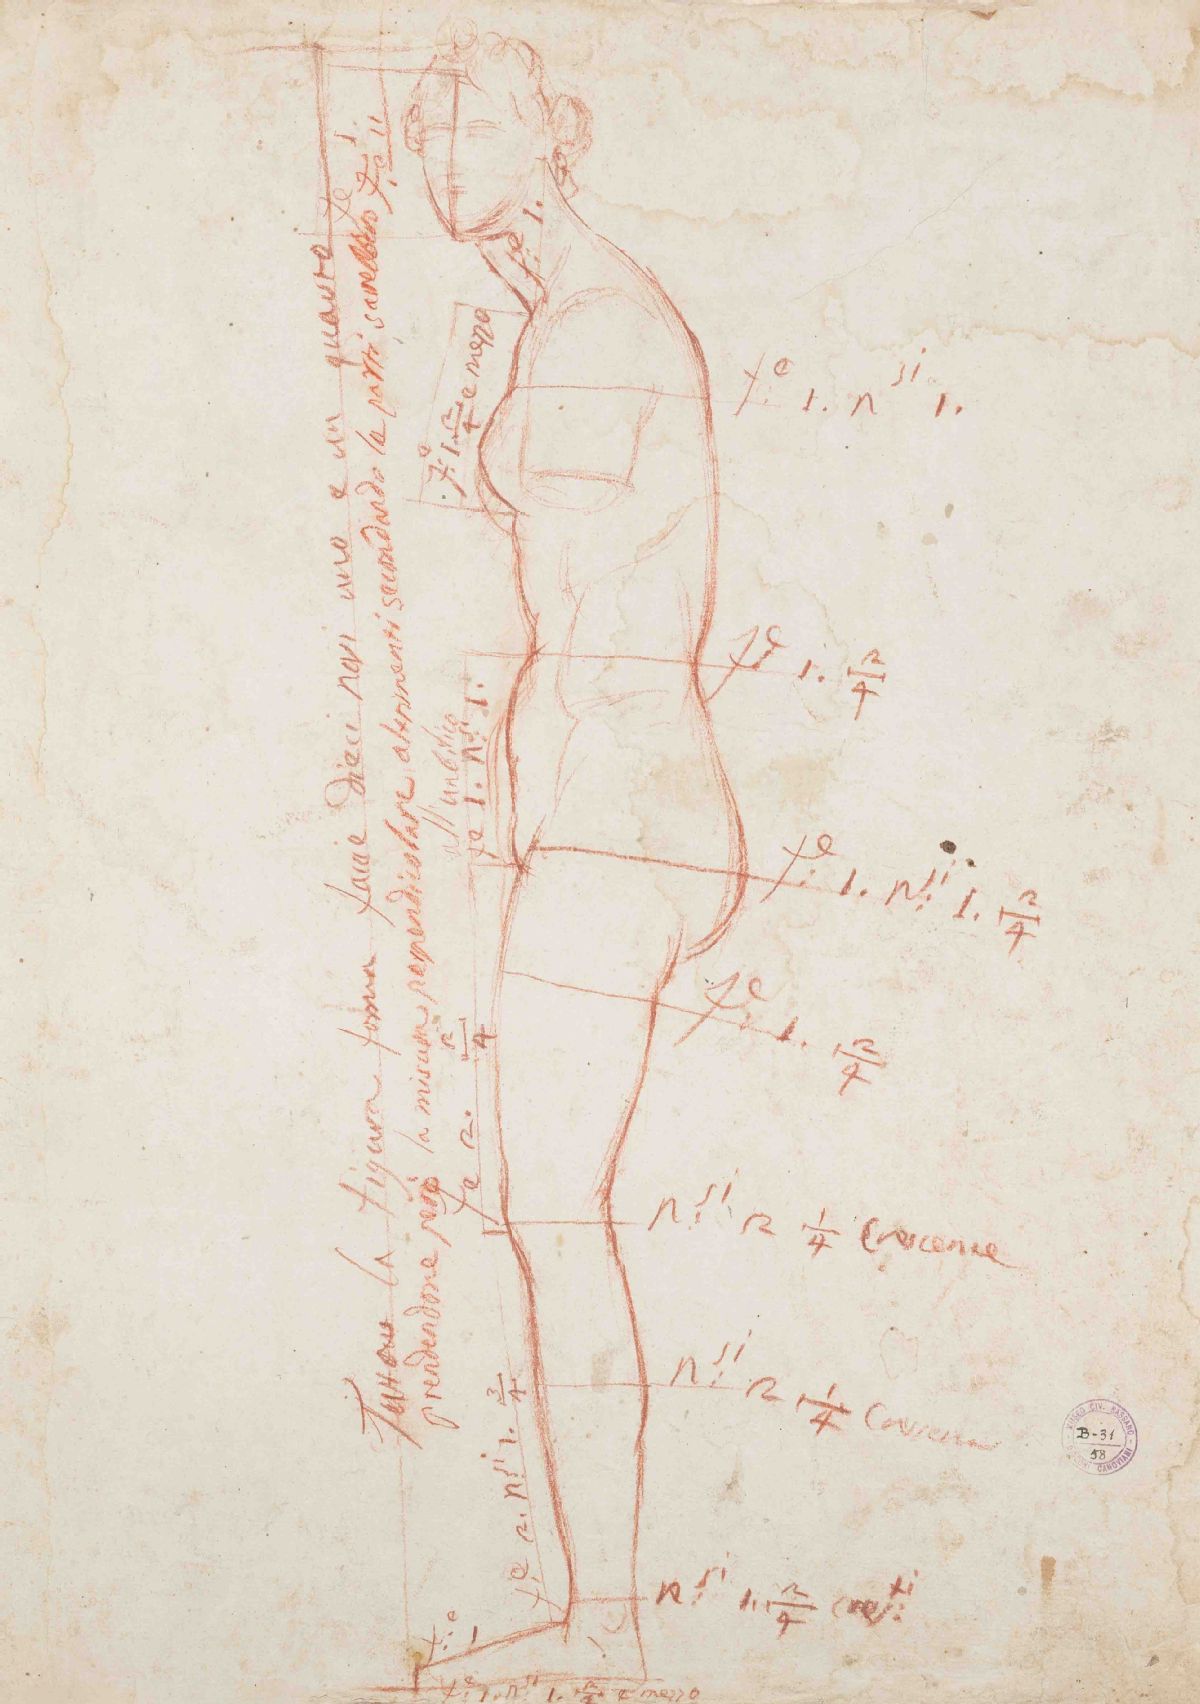 Tutta la figura forma facie dieci nasi uno e un quarto f.e
prendendone però la misura perpendicolare altrimenti secondando le parti sarebbero f.e 11
f.e 1.
f.e 1. 2/4 e mezzo
f.e 1. n.si 1.
f.e 1. 2/4
all'umbilico
f.e 1. n.si 1.
f.e 1. n.si 1. 2/4
f.e 1. 2/4
f.e 2. 2/4
n.si 2 1/4 Crescente
n.si 2 1/4
f.e 2. n.si 1. 3/4
n.si 1. 2/4
f.e 1
f.e 1. n.si 1. 2/4 e mezzo
MUSEO CIV. BASSANO
B-31
58
DISEGNI CANOVIANI